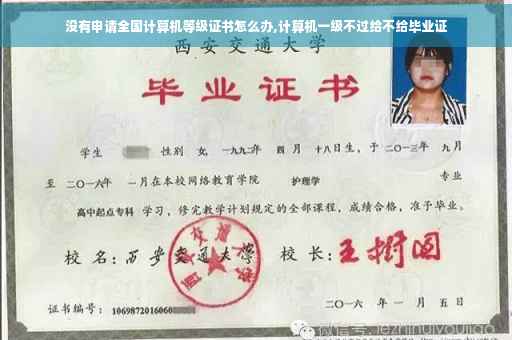 没有申请全国计算机等级证书怎么办,计算机一级不过给不给毕业证
西安交通大学
毕业证书
学生 性别 女, 一九九二年 四月 十八日生, 于 二〇一三年 九月
至 二〇一六年 一月在本校网络教育学院 护理学 专业
高中起点专科 学习, 修完教学计划规定的全部课程, 成绩合格, 准予毕业。
校名: 西安交通大学 校长: 王树国
西安交通大学
证书编号: 1069872016060
二〇一六 年 一 月 五 日
微信号: jezhihuiyoujiao